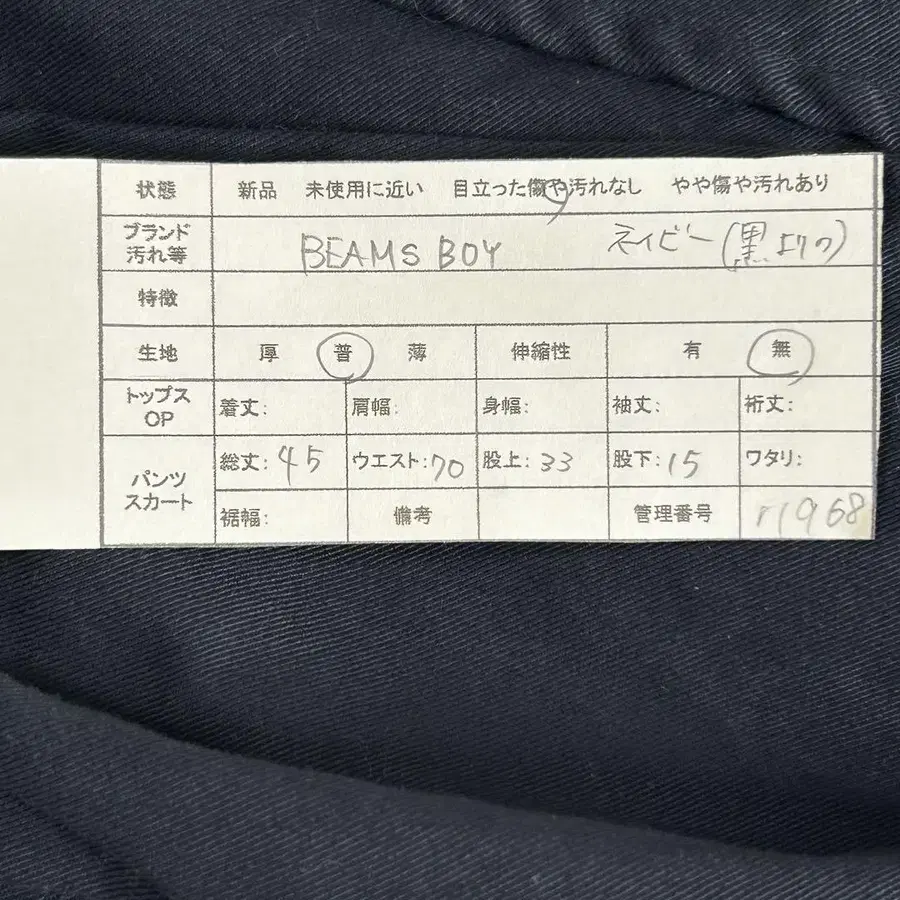 状態 新品 未使用に近い 目立った傷や汚れなし やや傷や汚れあり
ブランド
汚れ等 BEAMS BOY ネイビー(黒よりの)
特徴
生地 厚 普 薄 伸縮性 有 無
トップス
OP 着丈: 肩幅: 身幅: 袖丈: 裄丈:
パンツ
スカート 総丈:45 ウエスト:70 股上:33 股下:15 ワタリ:
裾幅: 備考 管理番号 r1968